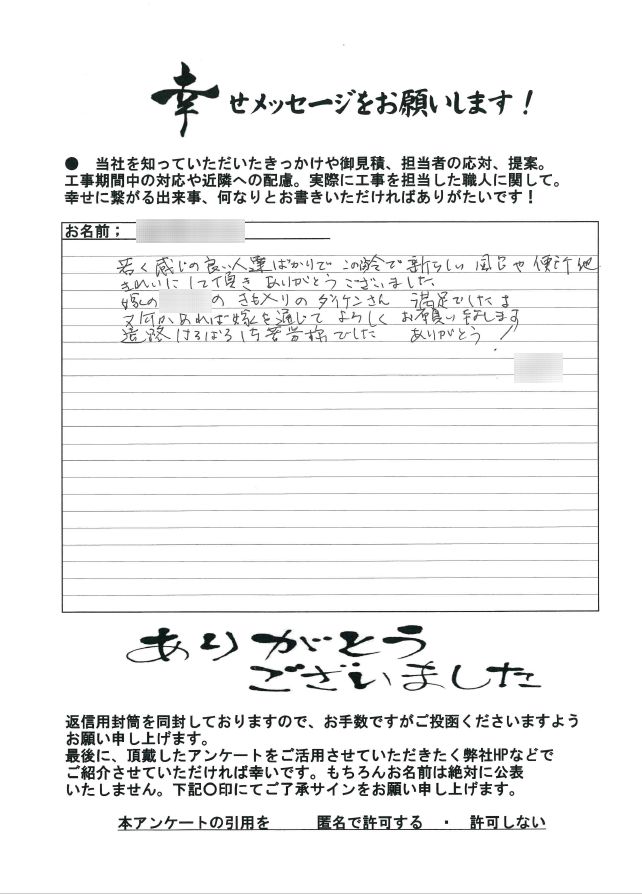 幸せメッセージをお願いします！
● 当社を知っていただいたきっかけや御見積、担当者の応対、提案。
工事期間中の対応や近隣への配慮。実際に工事を担当した職人に関して。
幸せに繋がる出来事、何なりとお書きいただければありがたいです！
お名前；
若く感じの良い人達ばかりで この齢で 新らしい 風呂や 便所 他
きれいにして頂き ありがとう ございました
嫁の の きも入りの ダイケンさん 満足でしたよ
又何かあれば嫁を通じて よろしく お願い 致します
遠路 はるばる 御苦労様 でした ありがとう！
ありがとう
ございました
返信用封筒を同封しておりますので、お手数ですがご投函くださいますよう
お願い申し上げます。
最後に、頂戴したアンケートをご活用させていただきたく弊社HPなどで
ご紹介させていただければ幸いです。もちろんお名前は絶対に公表
いたしません。下記〇印にてご了承サインをお願い申し上げます。
本アンケートの引用を 匿名で許可する ・ 許可しない